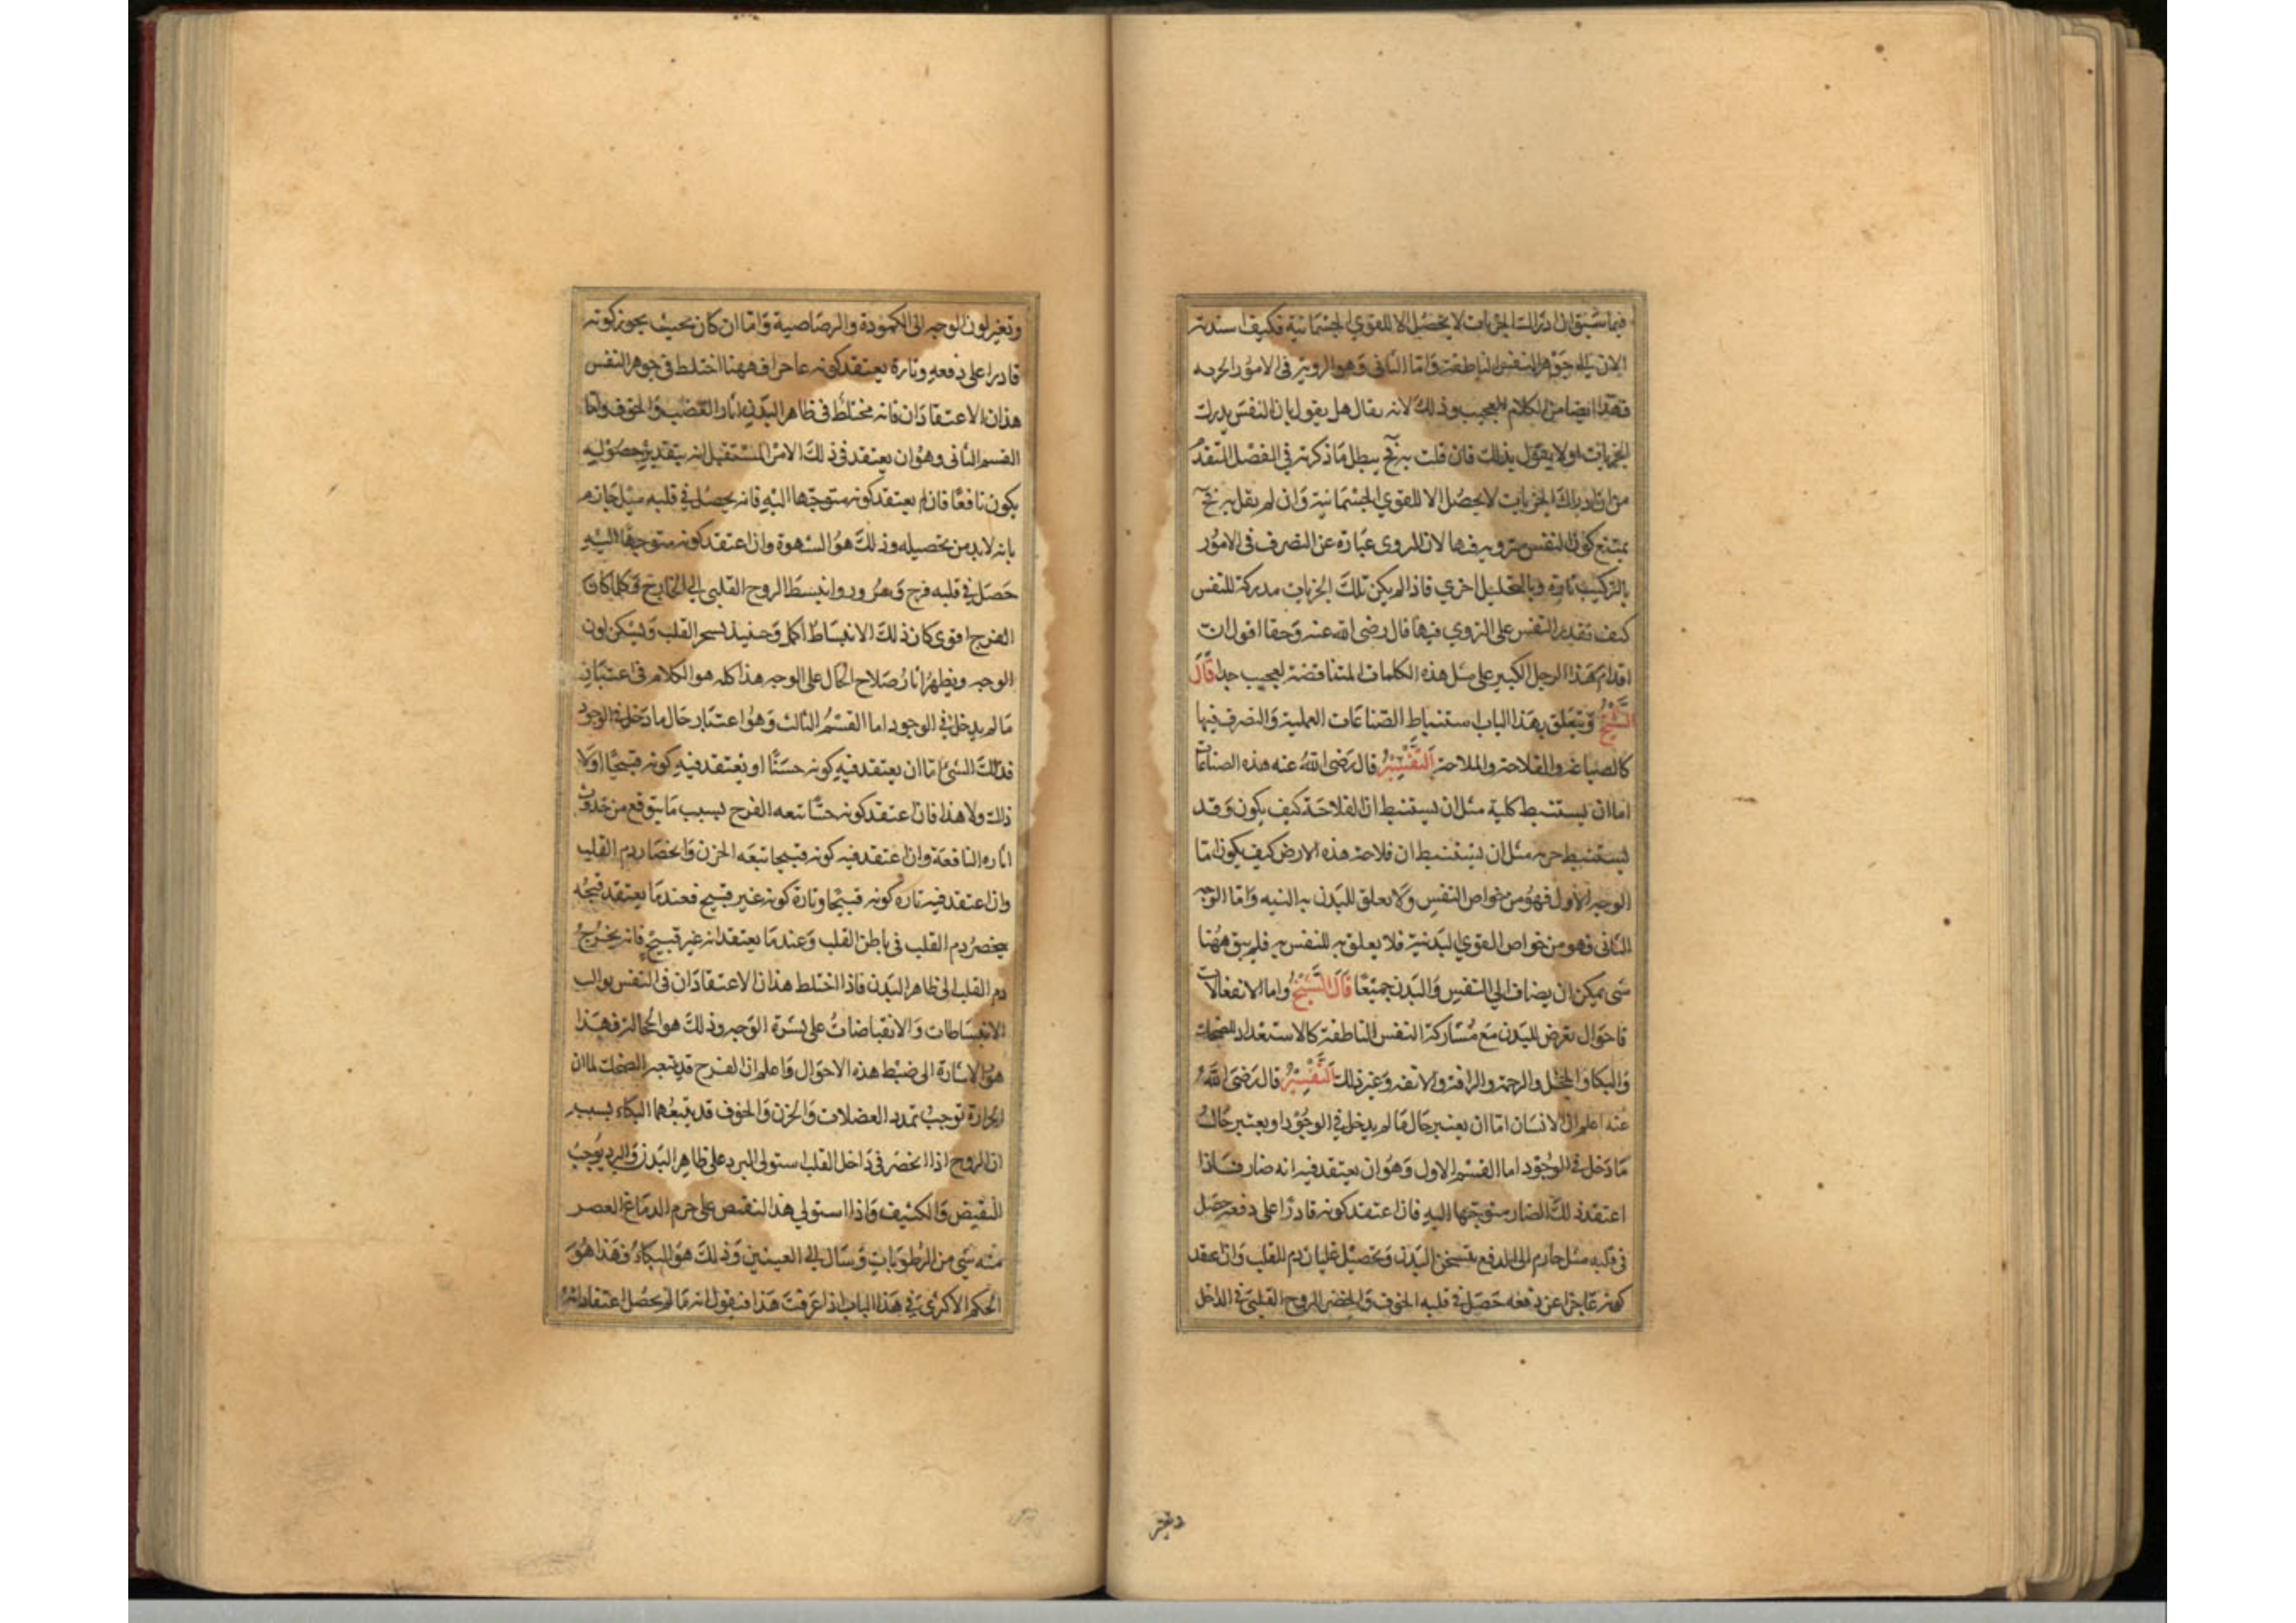 فيما سبق ان ادراك الجزئيات لا يحصل الا للقوي الجسمانية فكيف اسندته
الان الى جوهر النفس الناطقة واما الثانى وهو الروية فى الامور الجزئية
فهذا ايضا من الكلام العجيب وذلك لانه يقال هل يقول بان النفس يدرك
الجزئيات اولا يقول بذلك فان قلت به فح يبطل ما ذكرته في الفصل المتقدم
من ان ادراك الجزئيات لا يحصل الا للقوي الجسمانية وان لم يقل به فح
يمتنع كون النفس متروية فيها لان المروى عبارة عن التصرف فى الامور
بالتركيب تارة وبالتحليل اخري فاذا لم يكن تلك الجزئيات مدركة للنفس
كيف تقدير النفس على التروي فيها قال رضى الله عنه وحقا اقول ان
اقدام هذا الرجل الكبير على مثل هذه الكلمات المتناقضة لعجيب جدا قال
الشيخ ويتعلق بهذا الباب استنباط الصناعات العملية والتصرف فيها
كالصياغة والفلاحة والملاحة التفسير قال رضى الله عنه هذه الصناعات
اما ان يستنبط كلية مثل ان يستنبط ان الفلاحة كيف يكون وقد
يستنبط جزئية مثل ان يستنبط ان فلاحة هذه الارض كيف يكون اما
الوجه الاول فهو من خواص النفس ولا تعلق للبدن به البته واما الوجه
الثانى وهو من خواص القوي البدنية فلا يعلق به للنفس به فلم يبق ههنا
شى يمكن ان يضاف الي النفس والبدن جميعا قال الشيخ واما الانفعالات
فاحوال تعرض للبدن مع مشاركة النفس الناطقة كالاستعداد للضحك
والبكا والخجل والرحمة والرافة والانفة وغير ذلك التفسير قال رضى الله
عنه اعلم ان الانسان اما ان يعتبر حال ما لم يدخل في الوجود او يعتبر حال
ما دخل في الوجود اما القسم الاول وهو ان يعتقد فيه انه ضار فاذا
اعتقد ذلك الضار متوجها اليه فان اعتقد كونه قادرا على دفعه حصل
فى قلبه ميل جازم الى الدفع بتسخن البدن وتحصيل غليان دم القلب وان اعتقد
كونه عاجزا عن دفعه حصل في قلبه الخوف وانحصر الروح القلبى في الداخل
وتغير
وتغير لون الوجه الى الكمودة والرصاصية واما ان كان بحيث يجوز كونه
قادرا على دفعه وتارة يعتقد كونه عاجزا فههنا اختلط فى جوهر النفس
هذان الاعتقادان فانه مختلط فى ظاهر البدن اثار الغضب والخوف واما
القسم الثانى وهو ان يعتقد فى ذلك الامر المستقبل انه بتقدير حصوله
يكون نافعا فان لم يعتقد كونه متوجها اليه فانه يحصل في قلبه ميل جازم
بانه لابد من تحصيله وذلك هو الشهوة وان اعتقد كونه متوجها اليه
حصل في قلبه فرح وسرور وانبسط الروح القلبى الي الخارج وكلما كان
الفرح اقوى كان ذلك الانبساط اكمل وحينئذ يسخر القلب ويسكن لون
الوجه ويظهر اثار صلاح الحال على الوجه هذا كله هو الكلام فى اعتبار
ما لم يدخل في الوجود اما القسم الثالث وهو اعتبار حال ما دخل في الوجود
فذلك الشئ اما ان يعتقد فيه كونه حسنا او يعتقد فيه كونه قبيحا او لا
ذلك ولا هذا فان اعتقد كونه حسنا تبعه الفرح بسبب ما يتوقع من حدوث
اثاره النافعة وان اعتقد فيه كونه قبيحا تبعه الحزن وانحصار دم القلب
وان اعتقد فيه تارة كونه قبيحا وتارة كونه غير قبيح فعندما يعتقد قبحه
يحصر دم القلب فى باطن القلب وعندما يعتقد انه غير قبيح فانه يخرج
دم القلب الى ظاهر البدن فاذا اختلط هذان الاعتقادان فى النفس توالت
الانبساطات والانقباضات على بشرة الوجه وذلك هو الخجالة فهذا
هو الاشارة الى ضبط هذه الاحوال واعلم ان الفرح قد يتبعه الضحك لما ان
الحرارة توجب تمدد العضلات والحزن والخوف قد يتبعهما البكاء بسبب
ان الروح اذا انحصر فى داخل القلب استولى البرد على ظاهر البدن والبرد يوجب
التقبض والتكثيف واذا استولي هذا التقبض على جرم الدماغ انعصر
منه شى من الرطوبات وسال الي العينين وذلك هو البكاء فهذا هو
الحكم الاكثرى في هذا الباب اذا عرفت هذا فنقول انه ما لم يحصل اعتقاد انه